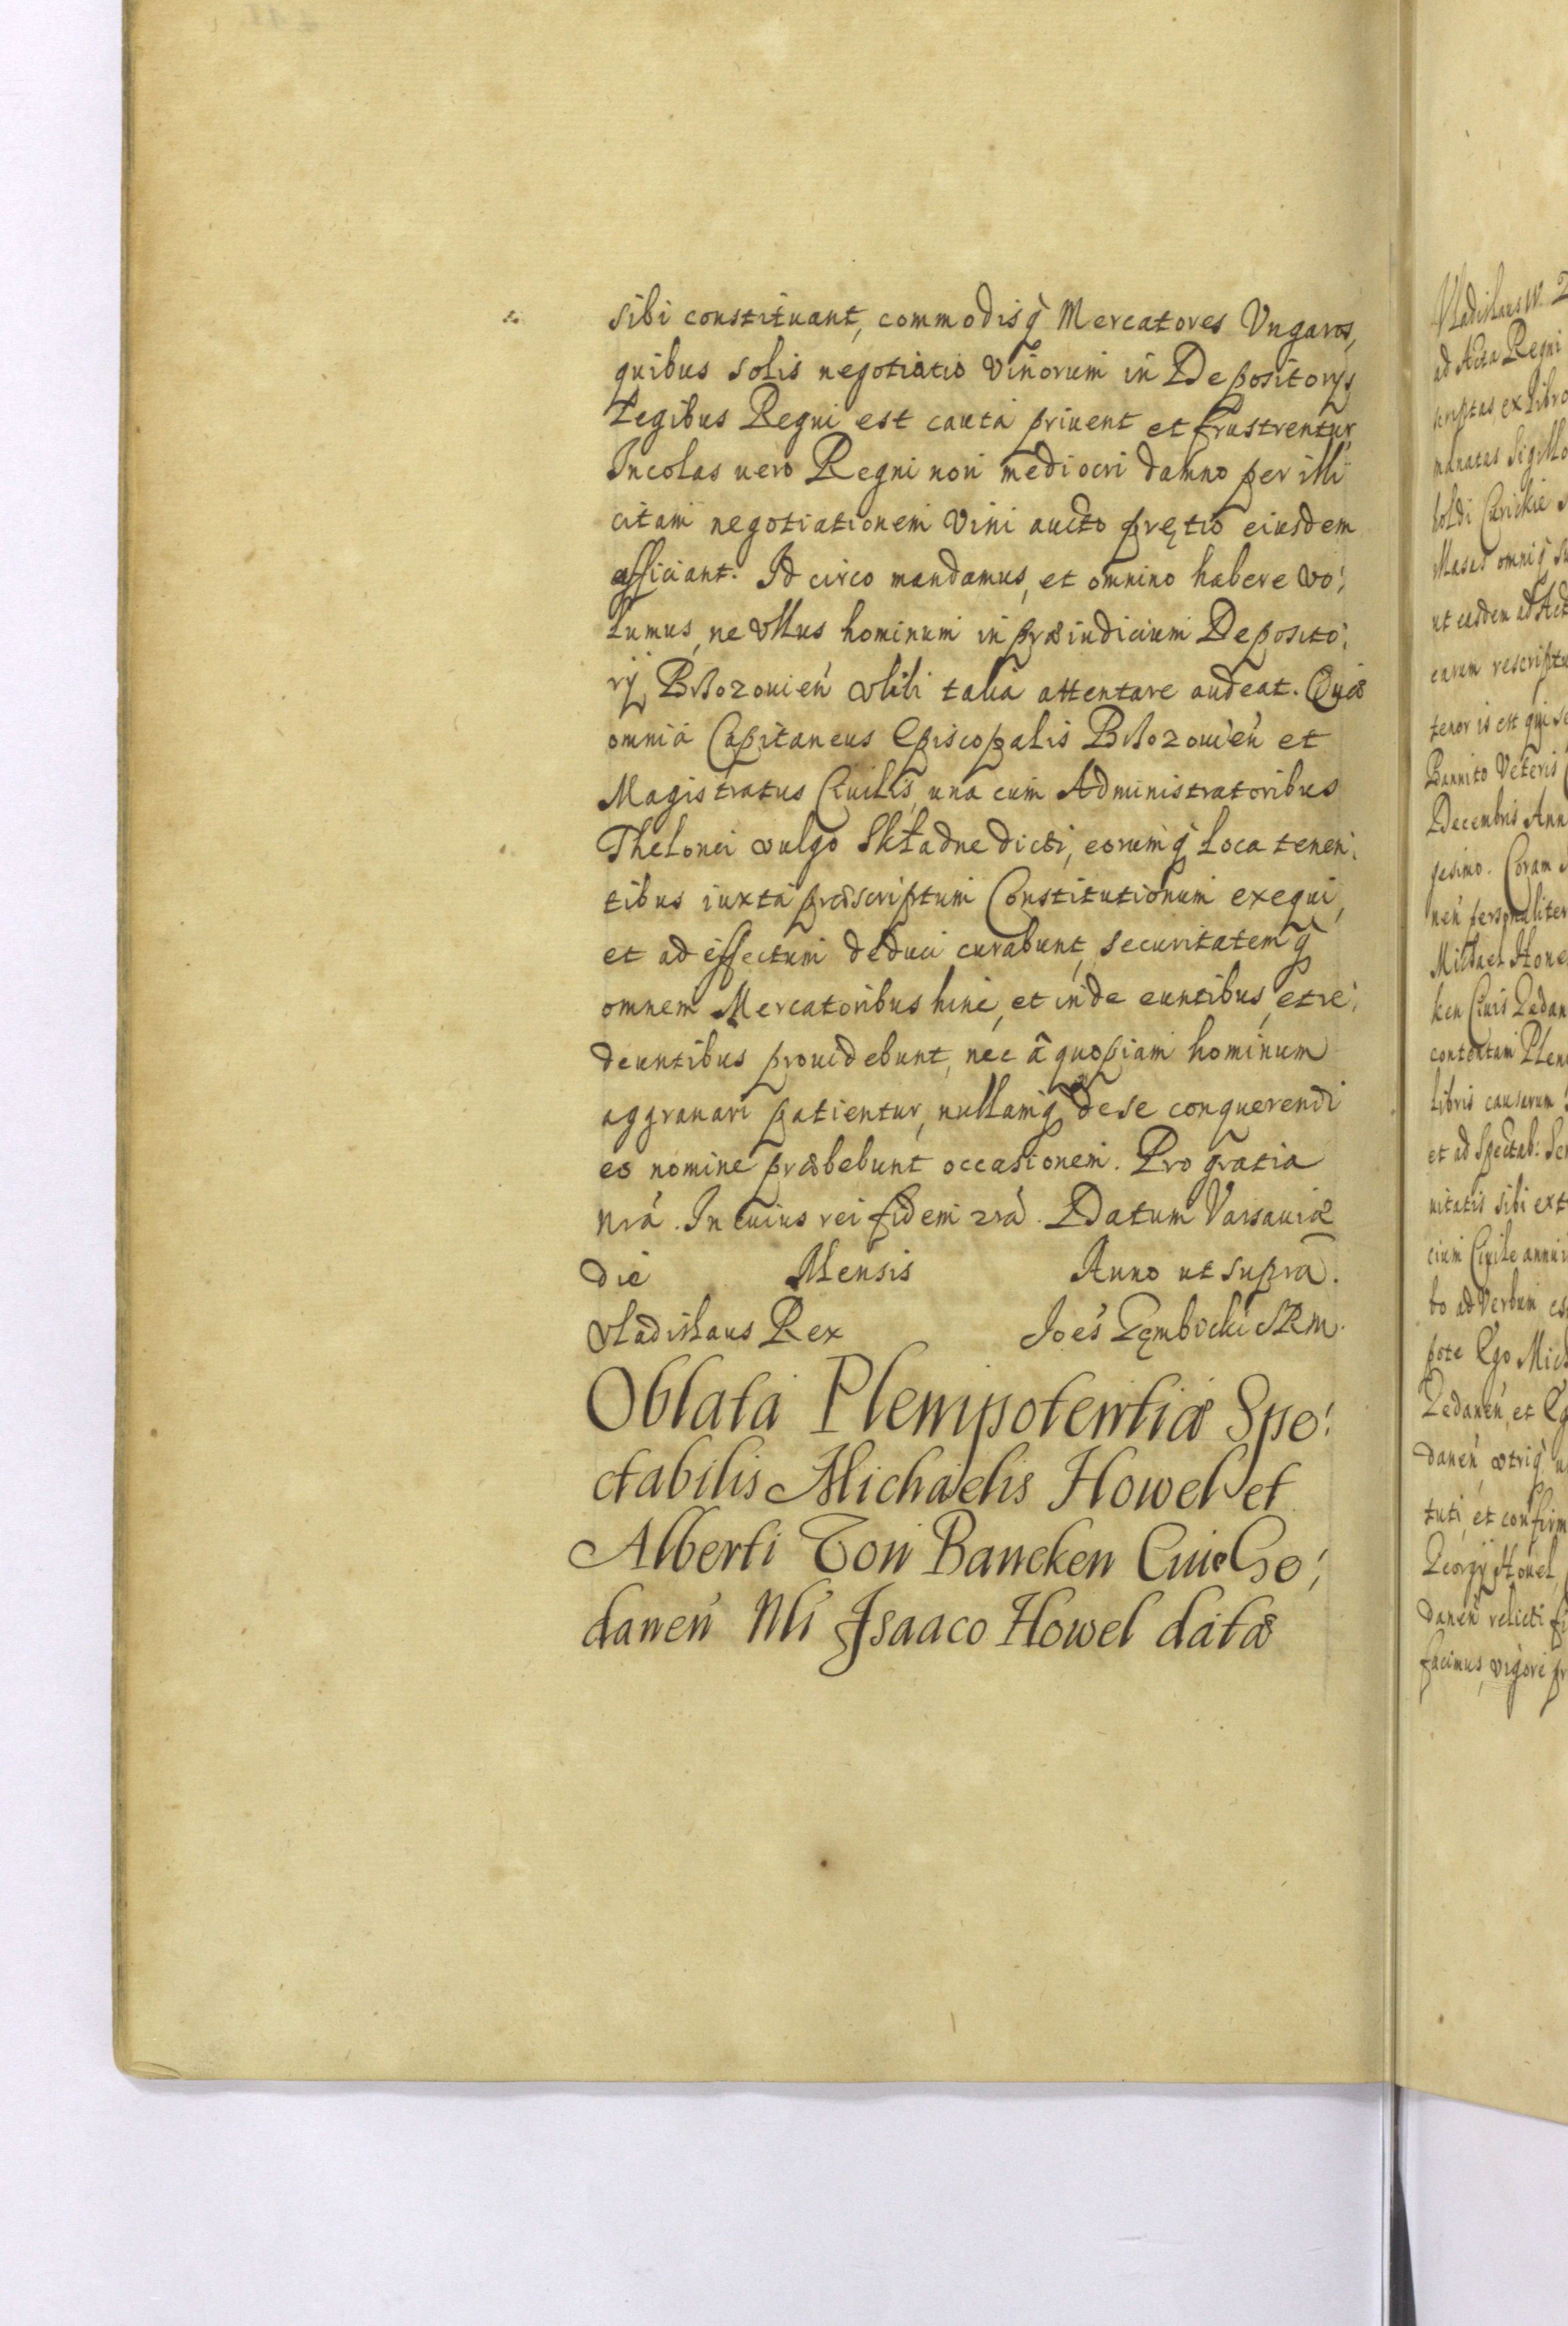 sibi constituant, commodisq̃ Mercatores Vngaros,
quibus solis negotiatio vinorum in Depositorijs
Legibus Regni est cauta priuent et frustrentur,
Incolas uero Regni non mediocri damno per illi
citam negotiationem Vini aucto prętio eiusdem
afficiant. Id circo mandamus, et omnino habere vo:
lumus, ne vllus hominum in præiudicium Deposito:
rij Brzozouień vlibi talia attentare audeat. Quæ
omnia Capitaneus Episcopalis Brzozouień et
Magistratus Ciuilis, una cum Administratoribus
Thelonei vulgo Składne dicti, eorumq̃ Loca tenen:
tibus iuxta præscriptum Constitutionum exequi,
et ad effectum deduci curabunt, securitatemq̃
omnem Mercatoribus hinc, et inde euntibus, et re:
deuntibus prouidebunt, nec â quopiam hominum
aggrauari patientur, nullamq̃ de se conquerendi
eo nomine præbebunt occasionem. Pro gratia
nrá. In cuius rei fidem 2rá. Datum Varsauiæ
die Mensis Anno ut supra.
Vladislaus Rex Joes Gęmbicki SRM.
Oblata Plenipotentiæ Spe:
ctabilis Michaelis Howel et
Alberti Von Bancken Ciuis Ge:
daneń Nli Isaaco Howel datæ
Vladislaus IV.
ad Acta Regni
scriptas, ex Libro
manatas Sigillo
holdi
Masas omniq̃
ut easdem ad Act
earum rescriptu
tenor is est qui se
Bannito Veteris
Decembris Ann
gesimo. Coram
neń personaliter
Michael Howe
ken Ciuis Gedan
contentam Plen
libris causarum
et ad Spectab: Se
uitatis sibi ext
cium Ciuile annui
bo ad Verbum es
pote Ego Mich
Gedaneń, et Eg
daneń, vtriq̃
tuti, et confirm
Georgij Howel,
daneń relicti fi
facimus, vigore pr